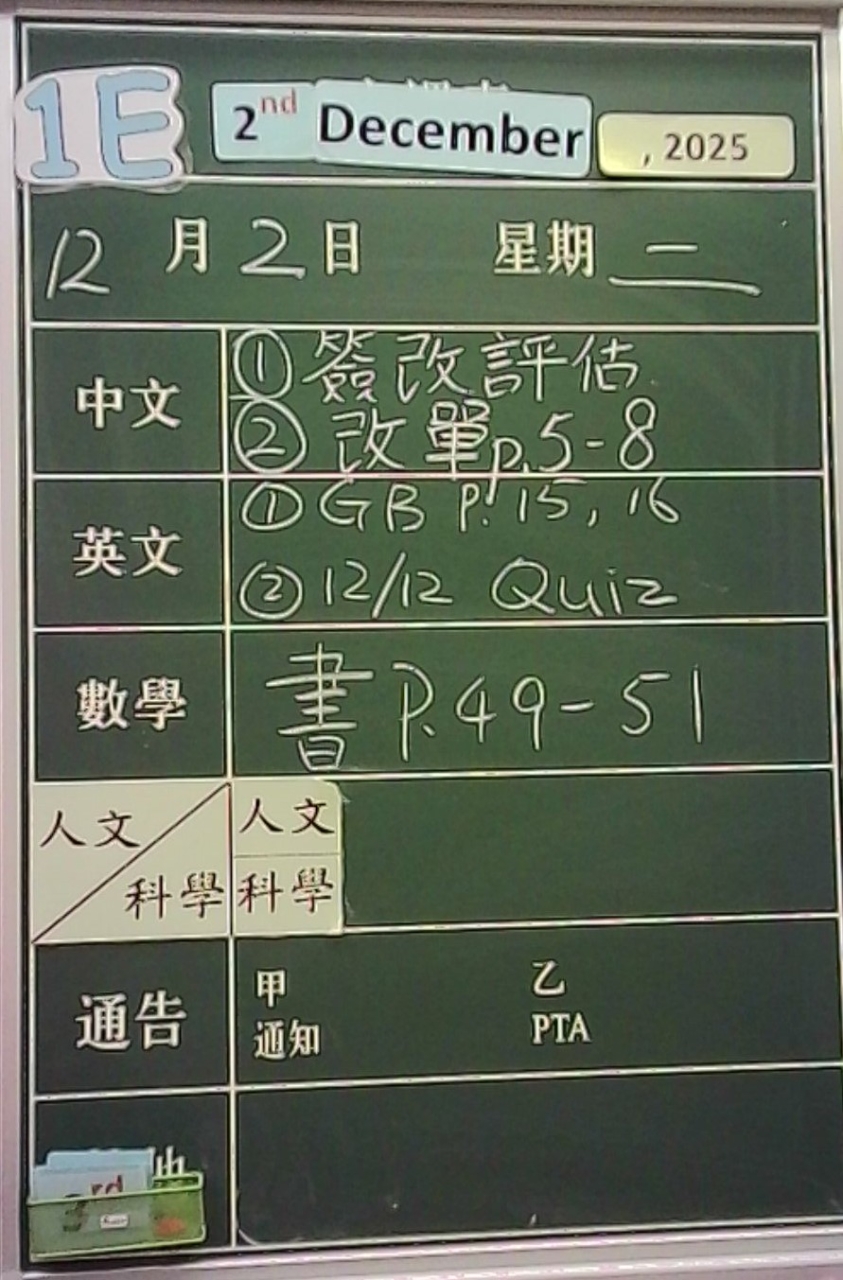 1E 2nd December , 2025
12 月 2 日 星期 二
中文
① 簽改評估
② 改單p.5-8
英文
① GB P.15, 16
② 12/12 Quiz
數學
書 P.49-51
人文
科學
人文
科學
通告
甲 乙
通知 PTA
3rd